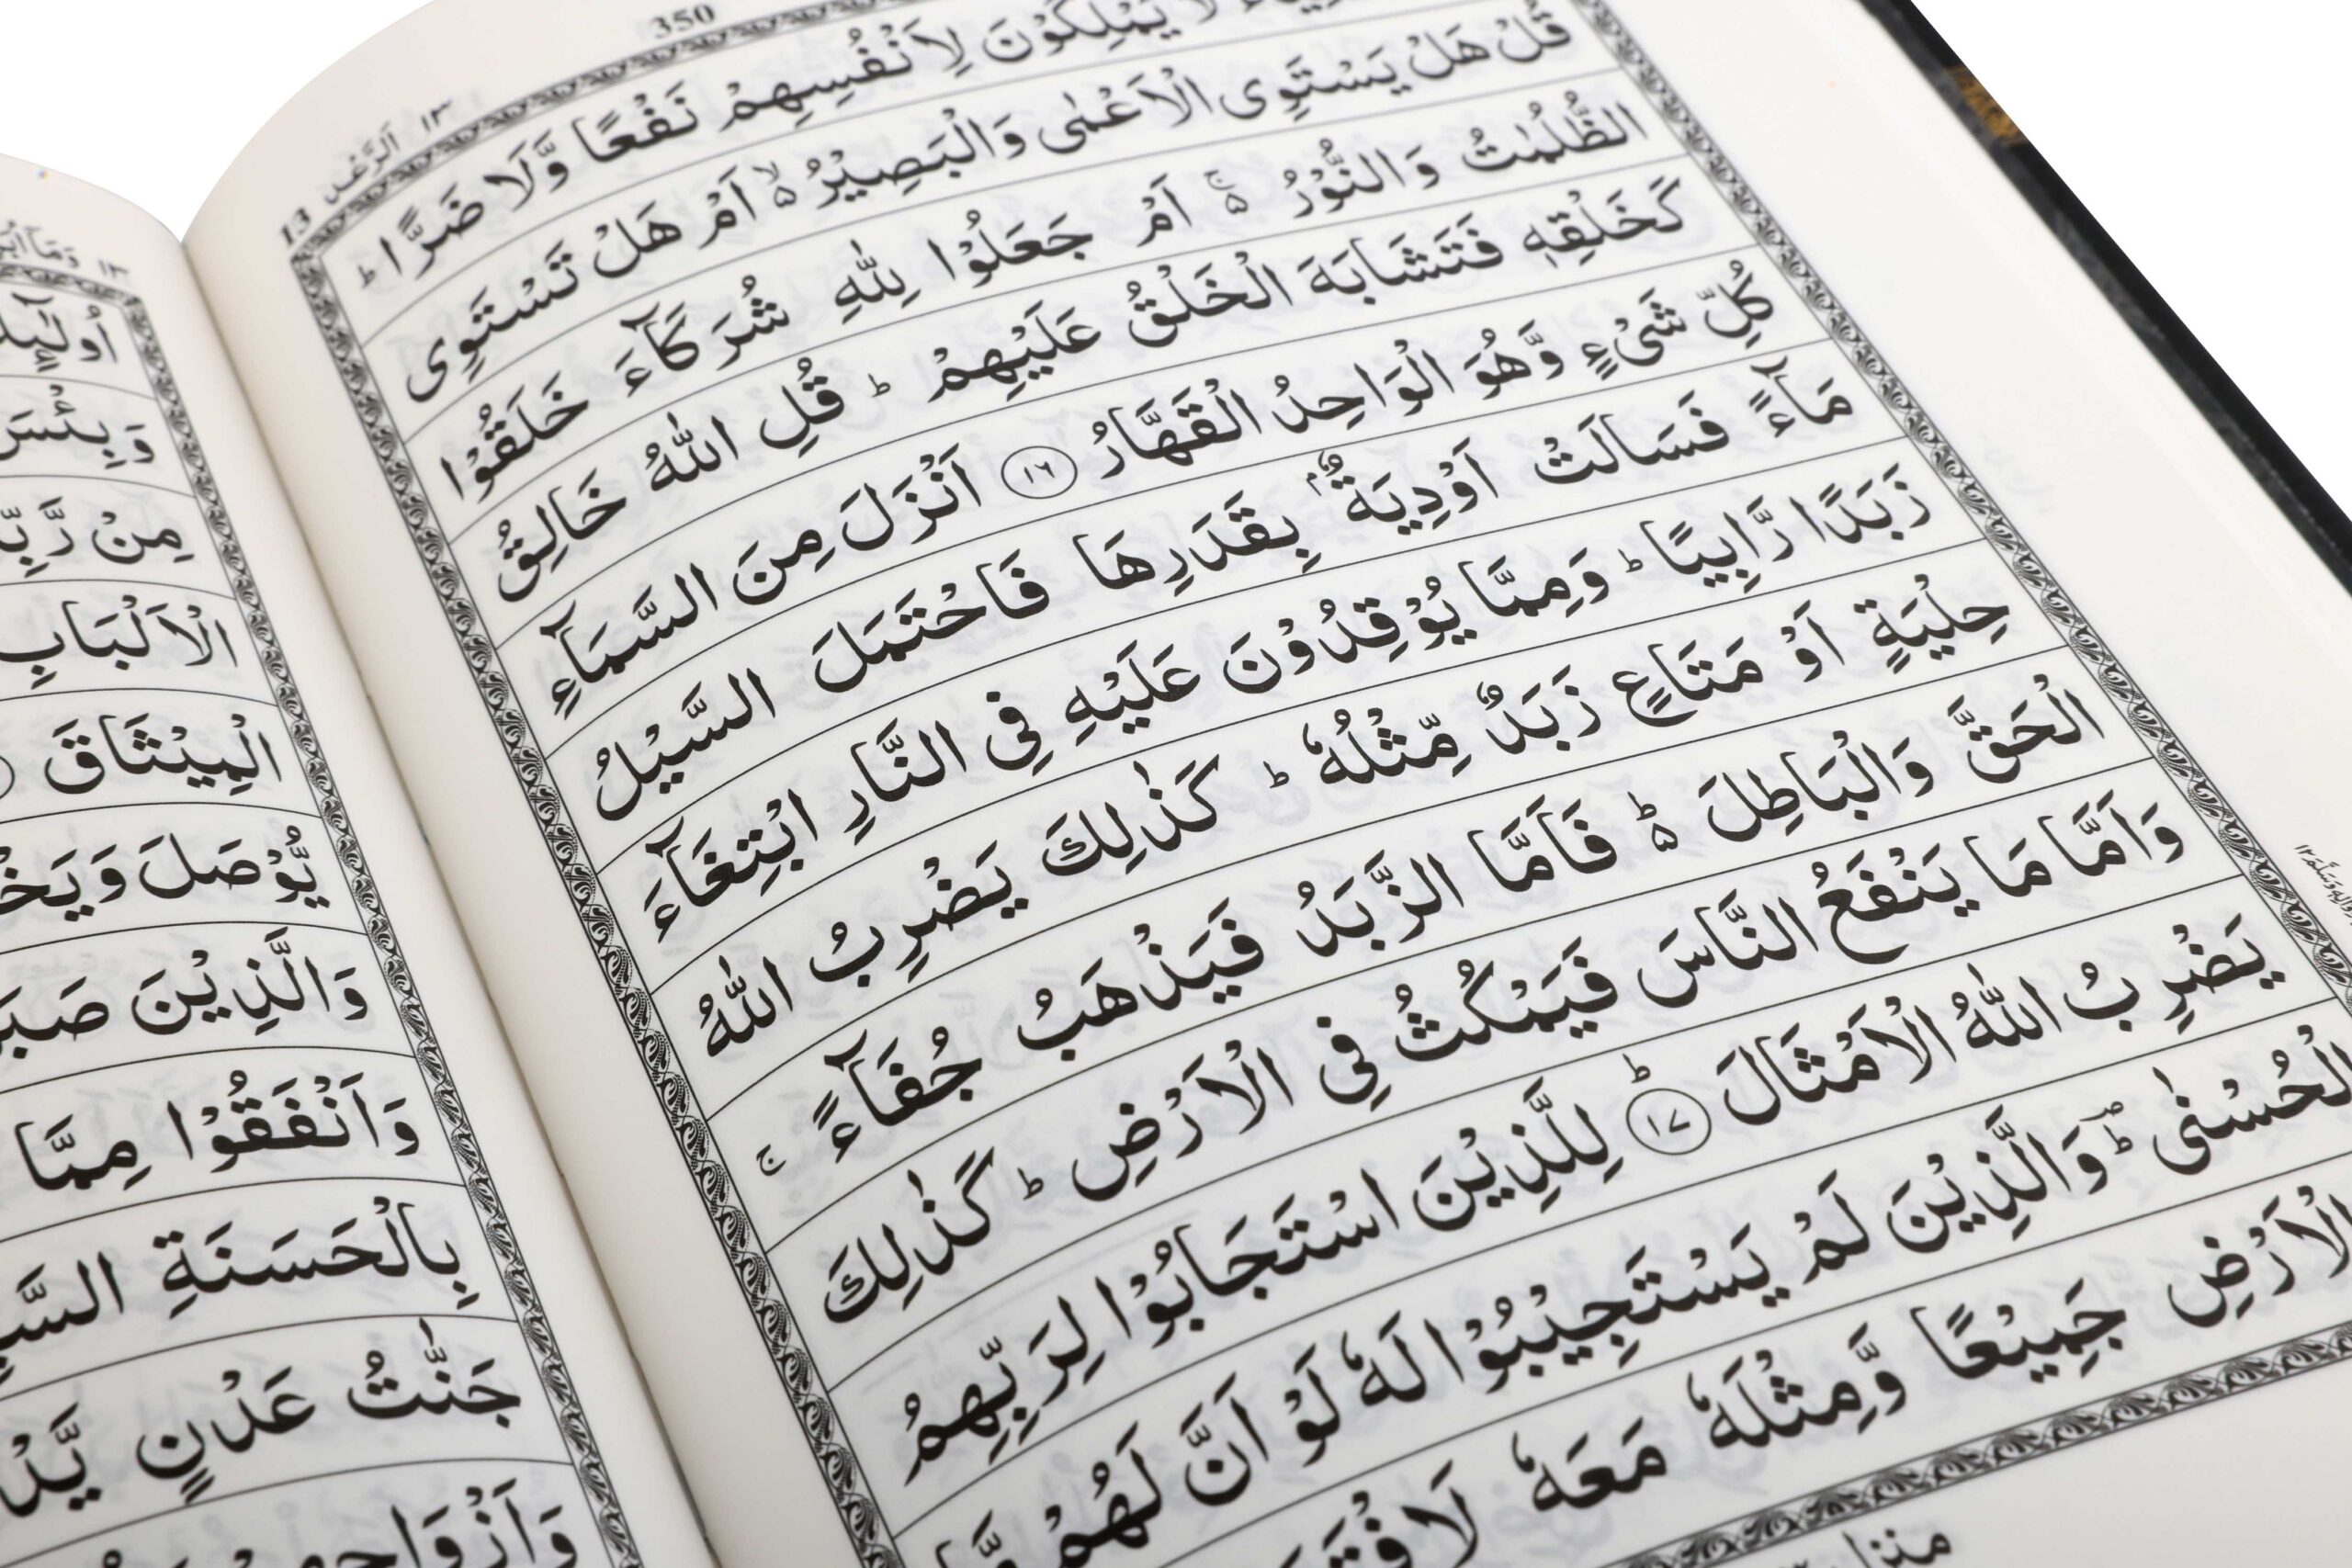 350
13 اَلرَّعْد ١٣
يَمْلِكُوْنَ لِاَنْفُسِهِمْ نَفْعًا وَّلَا ضَرًّا ؕ
قُلْ هَلْ يَسْتَوِى الْاَعْمٰى وَالْبَصِيْرُ ۙ۬ اَمْ هَلْ تَسْتَوِى
الظُّلُمٰتُ وَالنُّوْرُ ۚ۬ اَمْ جَعَلُوْا لِلّٰهِ شُرَكَآءَ خَلَقُوْا
كَخَلْقِهٖ فَتَشَابَهَ الْخَلْقُ عَلَيْهِمْ ؕ قُلِ اللّٰهُ خَالِقُ
كُلِّ شَىْءٍ وَّهُوَ الْوَاحِدُ الْقَهَّارُ ١٦ اَنْزَلَ مِنَ السَّمَآءِ
مَآءً فَسَالَتْ اَوْدِيَةٌۢ بِقَدَرِهَا فَاحْتَمَلَ السَّيْلُ
زَبَدًا رَّابِيًا ؕ وَمِمَّا يُوْقِدُوْنَ عَلَيْهِ فِى النَّارِ ابْتِغَآءَ
حِلْيَةٍ اَوْ مَتَاعٍ زَبَدٌ مِّثْلُهٗ ؕ كَذٰلِكَ يَضْرِبُ اللّٰهُ
الْحَقَّ وَالْبَاطِلَ ؕ۬ فَاَمَّا الزَّبَدُ فَيَذْهَبُ جُفَآءً ۚ
وَاَمَّا مَا يَنْفَعُ النَّاسَ فَيَمْكُثُ فِى الْاَرْضِ ؕ كَذٰلِكَ
يَضْرِبُ اللّٰهُ الْاَمْثَالَ ؕ ١٧ لِلَّذِيْنَ اسْتَجَابُوْا لِرَبِّهِمُ
الْحُسْنٰى ؕؔ وَالَّذِيْنَ لَمْ يَسْتَجِيْبُوْا لَهٗ لَوْ اَنَّ لَهُمْ
الْاَرْضِ جَمِيْعًا وَّمِثْلَهٗ مَعَهٗ
منزل
١٣
وَبِئْسَ
مِنْ رَّبِّ
الْاَلْبَابِ
الْمِيْثَاقَ
يُّوْصَلَ
وَالَّذِيْنَ
وَاَنْفَقُوْا مِمَّا
بِالْحَسَنَةِ
جَنّٰتُ عَدْنٍ